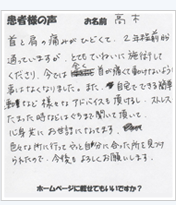 患者様の声 お名前 高木
首と肩の痛みがひどくて、2年程前から
通っていますが、とてもていねいに施術して
くださり、今では全く首が痛くて動けないような
事はなくなりました。また、自宅でできる簡単
動など様々なアドバイスも頂けるし、ストレス
たまった時などはぐちまで聞いて頂いて、
心身共にお世話になってます。
色々な所に行ってやっと自分に合った所を見つけ
られたので、今後もよろしくお願いします。
ホームページに載せてもいいですか？